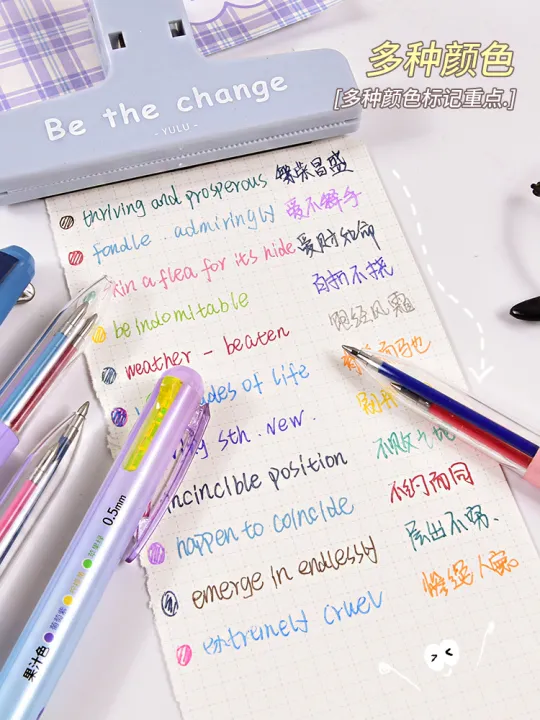 多种颜色
[多种颜色标记重点.]
Be the change
- YULU -
thriving and prosperous 繁荣昌盛
fondle . admiringly 爱不释手
a flea for its hide 爱财如命
be indomitable 百折不挠
weather - beaten 饱经风霜
of life
sth . new .
incincible position 不败之地
happen to coincide 不约而同
emerge in endlessly 层出不穷.
extremely cruel 惨绝人寰
0.5mm
果汁色 葡萄紫